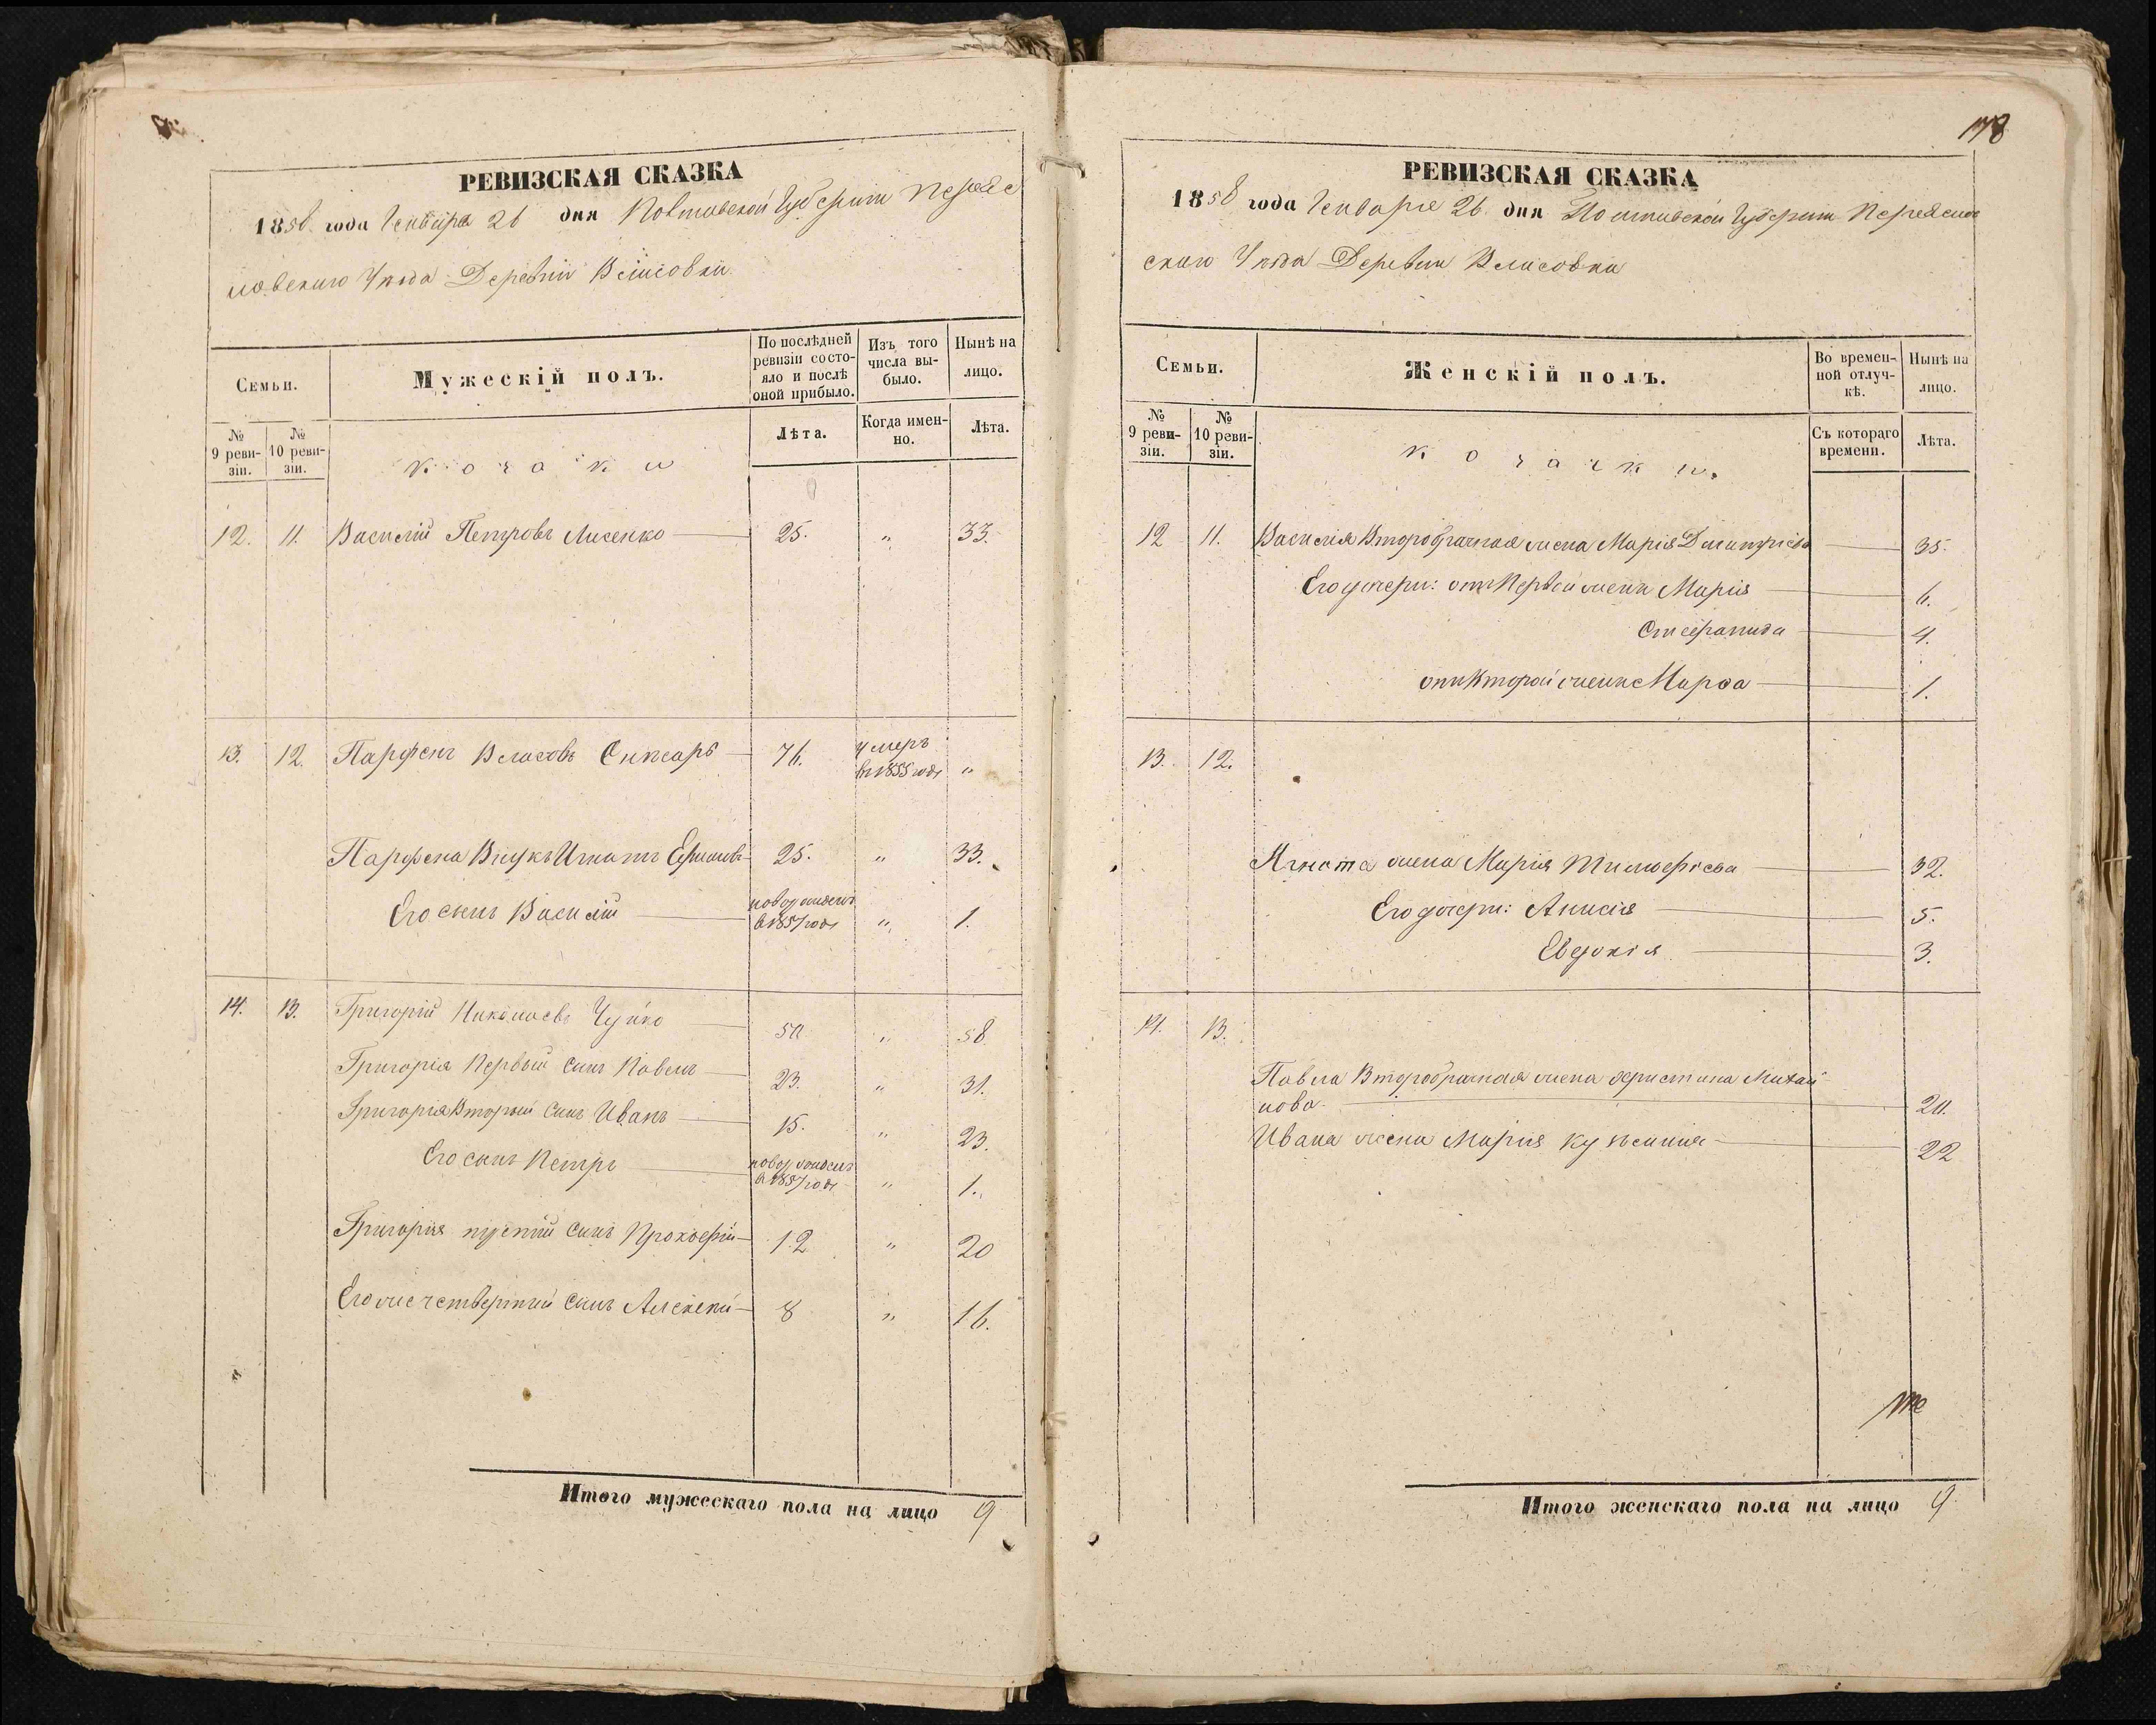 РЕВИЗСКАЯ СКАЗКА
1858 года Генваря 26 дня Полтавской Губерніи Переяс
лавскаго Уѣзда Деревни Власовки
Семьи.
Мужескій полъ.
По послѣдней ревизіи состояло и послѣ оной прибыло.
Изъ того числа выбыло.
Нынѣ на лицо.
№ 9 ревизіи.
№ 10 ревизіи.
козаки
Лѣта.
Когда именно.
Лѣта.
12. 11. Василій Петровъ Лисенко 25. " 33.
13. 12. Парфенъ Власовъ 76. умеръ
въ 1855 годѣ "
Парфена Внукъ Игнатъ 25. " 33.
Его сынъ Василій новорожденъ
въ 1857 годѣ " 1.
14. 13. Григорій Николаевъ Чуйко 50 " 58
Григорія Первый сынъ Павелъ 23. " 31.
Григорія Вторый сынъ Иванъ 15. " 23.
Его сынъ Петръ новорожденъ
въ 1857 годѣ " 1.
Григорія третій сынъ Прокофій 12 " 20
Его же четвертый сынъ Алексѣй 8 " 16.
Итого мужескаго пола на лицо 9
178
РЕВИЗСКАЯ СКАЗКА
1858 года Генваря 26 дня Полтавской Губерніи Переяслав
скаго Уѣзда Деревни Власовки
Семьи.
Женскій полъ.
Во временной отлучкѣ.
Нынѣ на лицо.
№ 9 ревизіи.
№ 10 ревизіи.
козачки.
Съ котораго времени.
Лѣта.
12 11. Василія Второбрачная жена Марія Дмитріева 35.
Его дочери: отъ Первой жены Марія 6.
Стефанида 4.
отъ Второй жены Марфа 1.
13. 12.
Игната жена Марія Тимофѣева 32.
Его дочери: Анисія 5.
Евдокія 3.
14. 13.
Павла Второбрачная жена Христина Михай
лова 20.
Ивана жена Марія Кузьмина 22
Итого женскаго пола на лицо 9